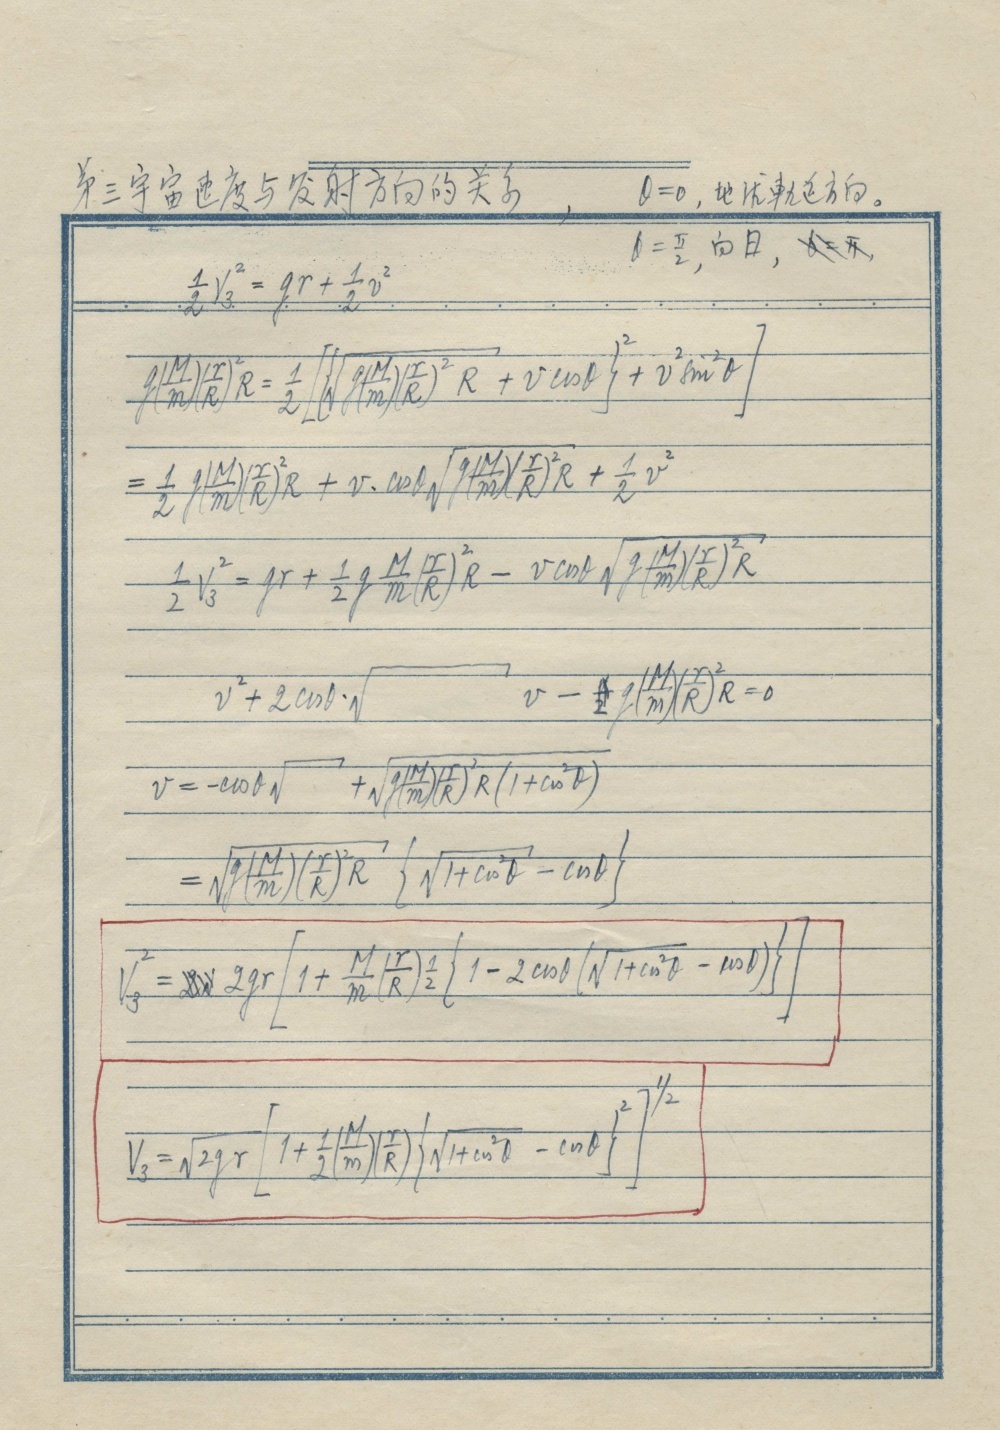 第三宇宙速度与发射方向的关系, θ=0, 地球軌道方向。
θ=π/2, 向日, θ=π,
1/2 V₃² = gr + 1/2 v²
g(M/m)(r/R)²R = 1/2 [{√(g(M/m)(r/R)² R) + v cosθ}² + v² sin²θ]
= 1/2 g(M/m)(r/R)²R + v·cosθ√(g(M/m)(r/R)²R) + 1/2 v²
1/2 V₃² = gr + 1/2 g M/m (r/R)²R − v cosθ √(g(M/m)(r/R)²R)
v² + 2cosθ·√ v − g(M/m)(r/R)²R = 0
v = −cosθ√ + √(g(M/m)(r/R)²R(1+cos²θ))
= √(g(M/m)(r/R)²R) {√(1+cos²θ) − cosθ}
V₃² = 2gr [1 + M/m (r/R) 1/2 {1 − 2cosθ(√(1+cos²θ) − cosθ)}]
V₃ = √(2gr) [1 + 1/2 (M/m)(r/R) {√(1+cos²θ) − cosθ}²]^1/2